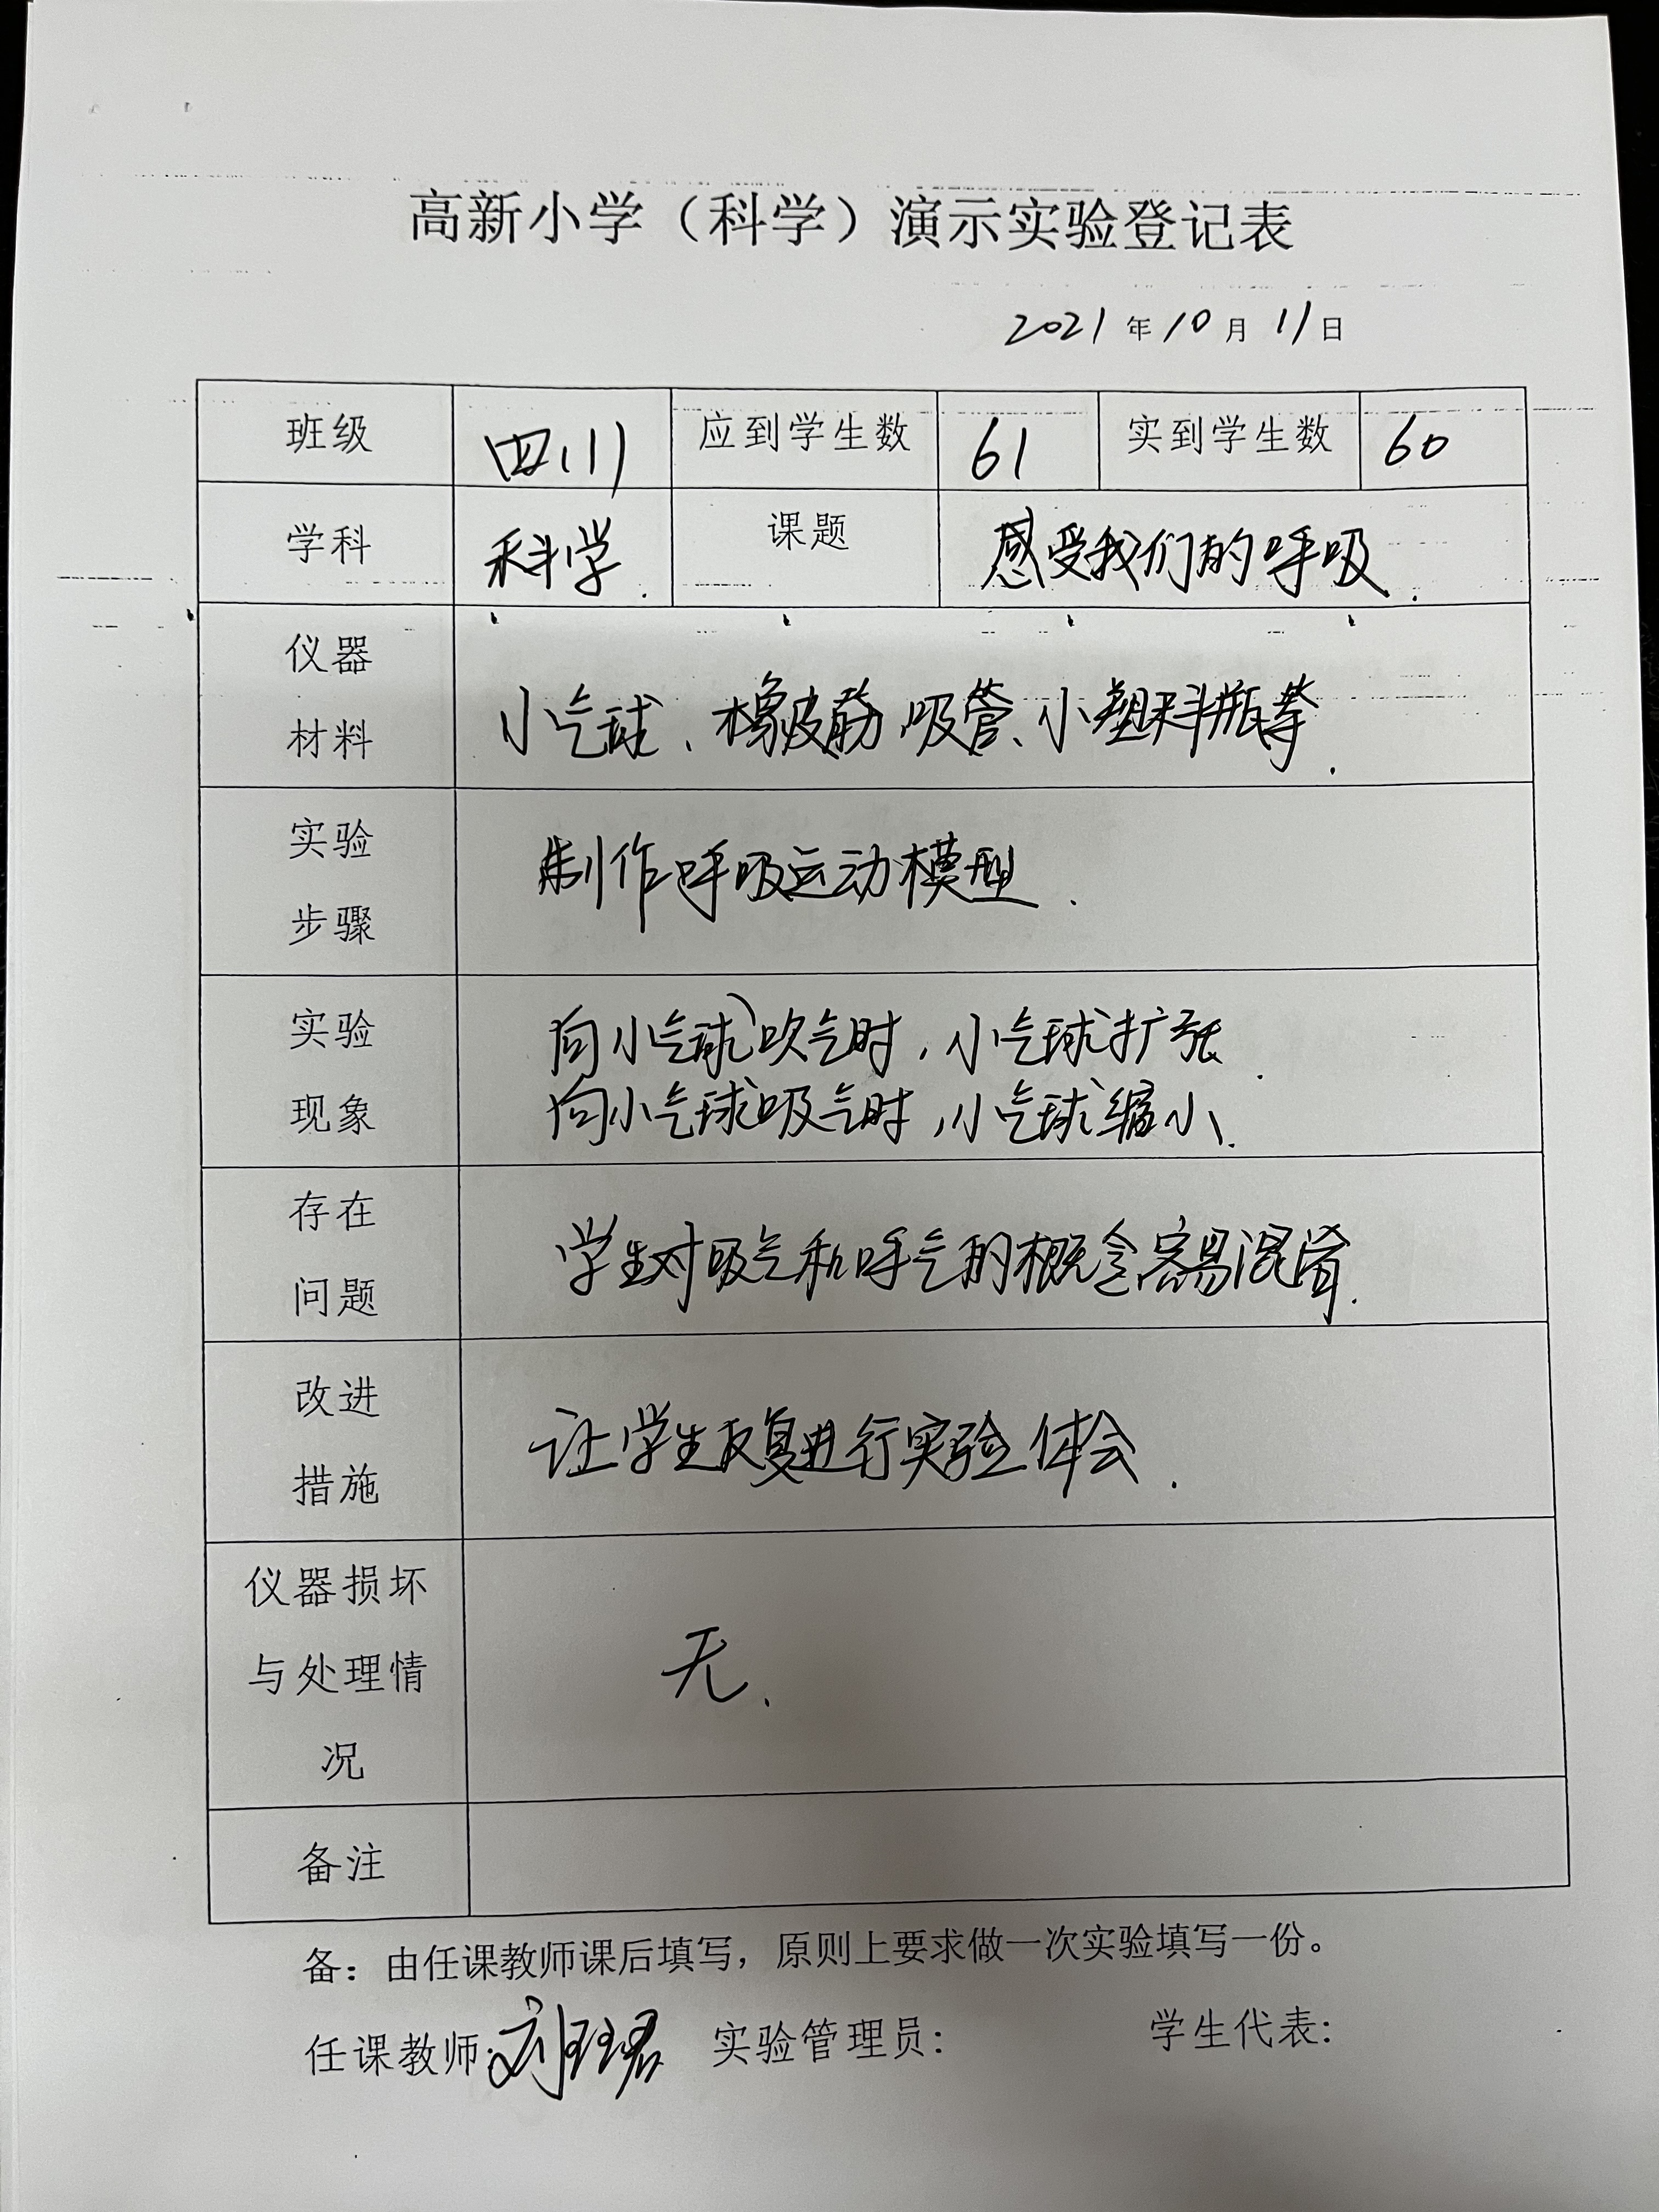 高新小学（科学）演示实验登记表
2021 年 10 月 11 日
班级 四(1) 应到学生数 61 实到学生数 60
学科 科学. 课题 感受我们的呼吸.
仪器
材料
小气球、橡皮筋、吸管、小塑料瓶等.
实验
步骤
制作呼吸运动模型.
实验
现象
向小气球吹气时,小气球扩张.
向小气球吸气时,小气球缩小.
存在
问题
学生对吸气和呼气的概念容易混淆.
改进
措施
让学生反复进行实验体会.
仪器损坏
与处理情
况
无.
备注
备：由任课教师课后填写，原则上要求做一次实验填写一份。
任课教师: 实验管理员: 学生代表: